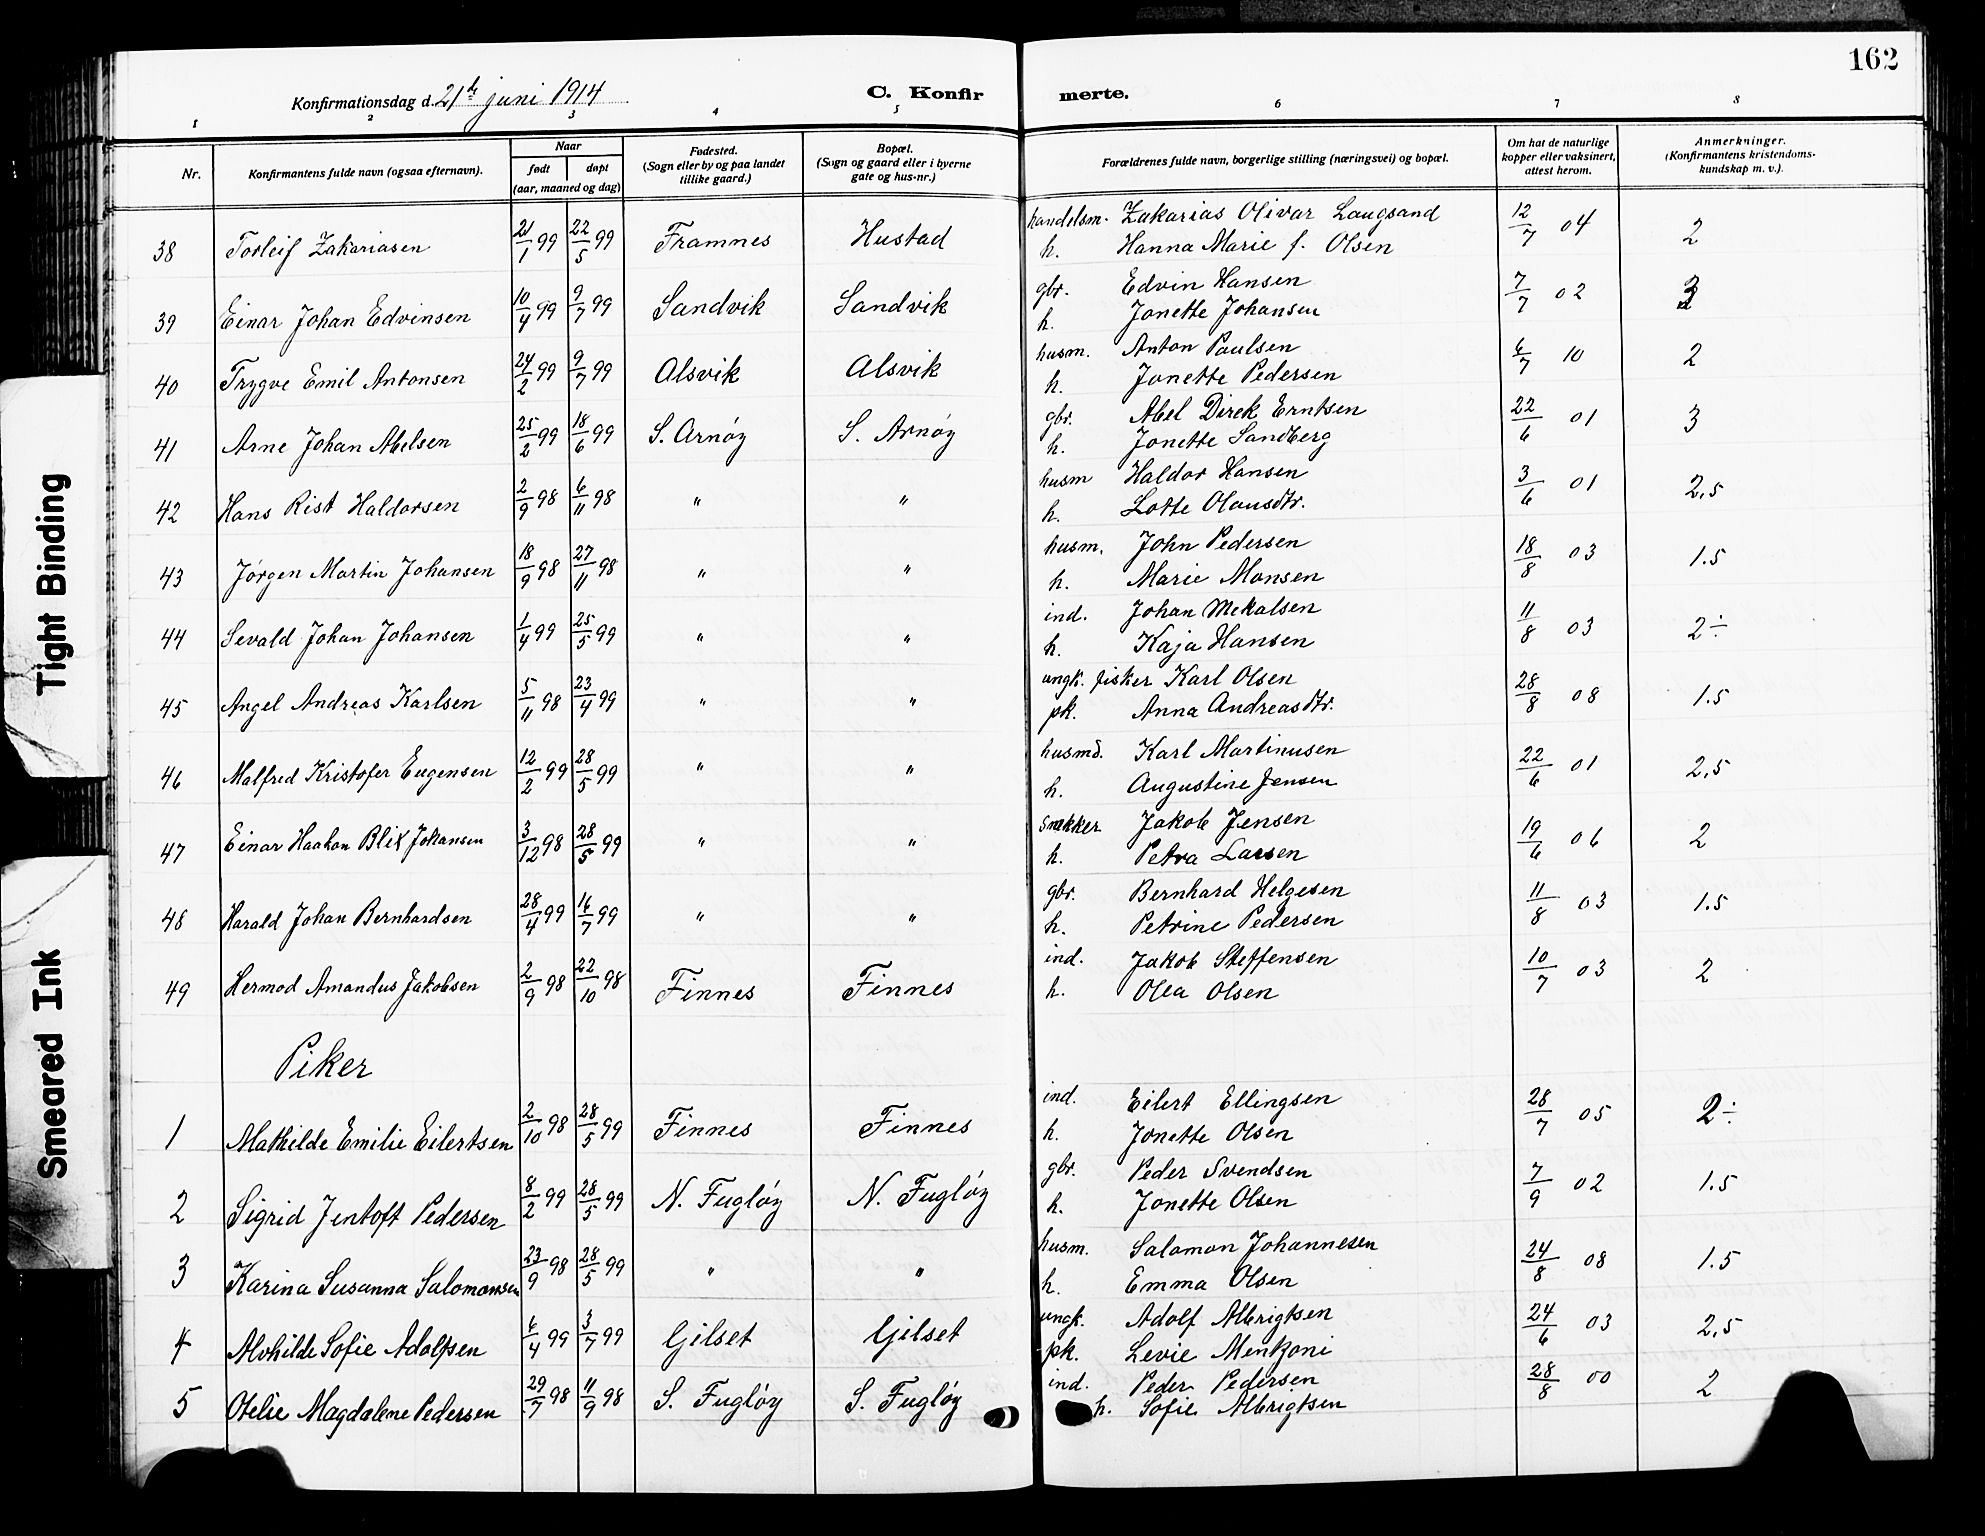 162
Konfirmationsdag d. 21de juni 1914
C. Konfirmerte.
1 2 3 4 5 6 7 8
Nr.
Konfirmantens fulde navn (ogsaa efternavn).
Naar
født
døpt
(aar, maaned og dag)
Fødested.
(Sogn eller by og paa landet
tillike gaard.)
Bopæl.
(Sogn og gaard eller i byerne
gate og hus-nr.)
Forældrenes fulde navn, borgerlige stilling (næringsvei) og bopæl.
Om hat de naturlige
kopper eller vaksinert,
attest herom.
Anmerkninger.
(Konfirmantens kristendoms-
kundskap m. v.).
38 Torleif Zakariasen 21/1 99 22/5 99 Framnes Hustad handelsm. Zakarias Olivar Langsand 12/7 04 2
h. Hanna Marie f. Olsen
39 Einar Johan Edvinsen 10/4 99 9/7 99 Sandvik Sandvik gbr. Edvin Hansen 7/7 02 3
h. Jonette Johansen
40 Trygve Emil Antonsen 24/2 99 9/7 99 Alsvik Alsvik husm. Anton Paulsen 6/7 10 2
h. Jonette Pedersen
41 Arne Johan Abelsen 25/2 99 18/6 99 S. Arnøy S. Arnøy gbr. Abel Direk Erntsen 22/6 01 3
h. Jonette Sandberg
42 Hans Rist Haldorsen 2/9 98 6/11 98 " " husm Haldor Hansen 3/6 01 2,5
h. Lotte Olausdtr.
43 Jørgen Martin Johansen 18/9 98 27/11 98 " " husm. John Pedersen 18/8 03 1.5
h. Marie Monsen
44 Sevald Johan Johansen 1/4 99 25/5 99 " " ind. Johan Mekalsen 11/8 03 2÷
h. Kaja Hansen
45 Angel Andreas Karlsen 5/11 98 23/4 99 " " ungk. fisker Karl Olsen 28/8 08 1.5
pk. Anna Andreasdtr.
46 Malfred Kristofer Eugensen 12/2 99 28/5 99 " " husmd. Karl Martinusen 22/6 01 2,5
h. Augustine Jensen
47 Einar Haakon Blix Johansen 3/12 98 28/5 99 " " snekker Jakob Jensen 19/6 06 2
h. Petra Larsen
48 Harald Johan Bernhardsen 28/4 99 16/7 99 " " gbr. Bernhard Helgesen 11/8 03 1.5
h. Petrine Pedersen
49 Hermod Amandus Jakobsen 2/9 98 22/10 98 Finnes Finnes ind. Jakob Steffensen 10/7 03 2
h. Olea Olsen
Piker
1 Mathilde Emilie Eilertsen 2/10 98 28/5 99 Finnes Finnes ind. Eilert Ellingsen 28/7 05 2÷
h. Jonette Olsen
2 Sigrid Jentoft Pedersen 8/2 99 28/5 99 N. Fugløy N. Fugløy gbr. Peder Svendsen 7/9 02 1.5
h. Jonette Olsen
3 Karina Susanna Salomonsen 23/9 98 28/5 99 " " husm. Salomon Johannesen 24/8 08 1.5
h. Emma Olsen
4 Alvhilde Sofie Adolfsen 6/4 99 3/7 99 Gilset Gilset ungk. Adolf Albrigtsen 24/6 03 2,5
pk. Levie Mentzoni
5 Otelie Magdalene Pedersen 29/7 98 11/9 98 S. Fugløy S. Fugløy ind. Peder Pedersen 28/8 00 2
h. Sofie Albrigtsen
Tight Binding
Smeared Ink